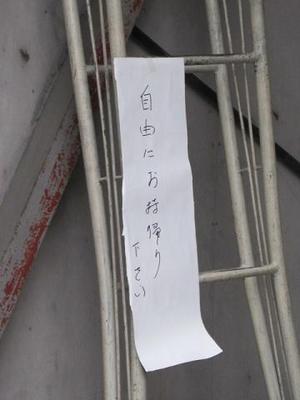 自由にお持帰り
下さい